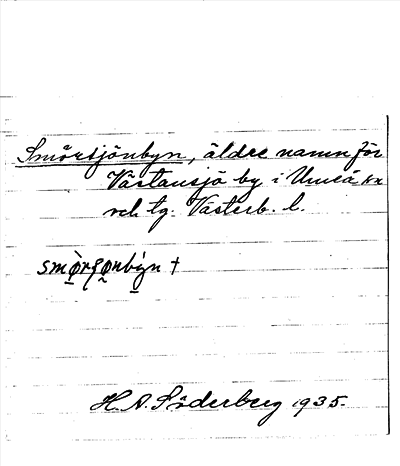 Smörsjönbyn, äldre namn för
Västansjö by i Umeå sn
och tg. Västerb. l.
smö̀rʂønbỳn †
H. A. Söderberg 1935.